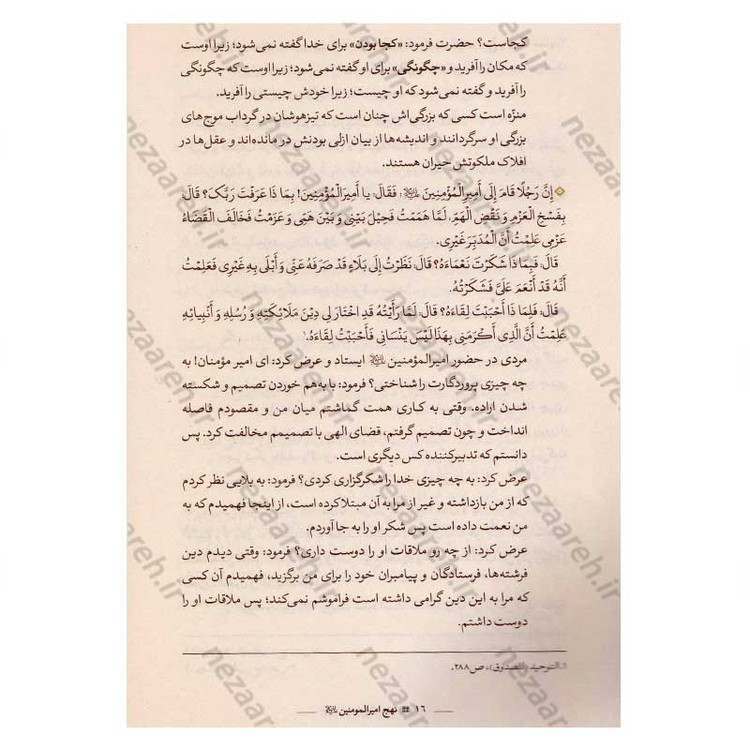 کجاست؟ حضرت فرمود: «کجا بودن» برای خدا گفته نمی‌شود؛ زیرا اوست
که مکان را آفرید و «چگونگی» برای او گفته نمی‌شود؛ زیرا اوست که چگونگی
را آفرید و گفته نمی‌شود که او چیست؛ زیرا خودش چیستی را آفرید.
منزّه است کسی که بزرگی‌اش چنان است که تیزهوشان در گرداب موج‌های
بزرگی او سرگردانند و اندیشه‌ها از بیان ازلی بودنش در مانده‌اند و عقل‌ها در
افلاک ملکوتش حیران هستند.
إِنَّ رَجُلًا قَامَ إِلَى أَمِيرِ الْمُؤْمِنِينَ ﷺ، فَقَالَ: يَا أَمِيرَ الْمُؤْمِنِينَ! بِمَا ذَا عَرَفْتَ رَبَّكَ؟ قَالَ:
بِفَسْخِ الْعَزْمِ وَ نَقْضِ الْهَمِّ، لَمَّا هَمَمْتُ فَحِيلَ بَيْنِي وَ بَيْنَ هَمِّي وَ عَزَمْتُ فَخَالَفَ الْقَضَاءُ
عَزْمِي عَلِمْتُ أَنَّ الْمُدَبِّرَ غَيْرِي.
قَالَ: فَبِمَا ذَا شَكَرْتَ نَعْمَاءَهُ؟ قَالَ: نَظَرْتُ إِلَى بَلَاءٍ قَدْ صَرَفَهُ عَنِّي وَ أَبْلَى بِهِ غَيْرِي فَعَلِمْتُ
أَنَّهُ قَدْ أَنْعَمَ عَلَيَّ فَشَكَرْتُهُ.
قَالَ: فَلِمَا ذَا أَحْبَبْتَ لِقَاءَهُ؟ قَالَ: لَمَّا رَأَيْتُهُ قَدِ اخْتَارَ لِي دِينَ مَلَائِكَتِهِ وَ رُسُلِهِ وَ أَنْبِيَائِهِ
عَلِمْتُ أَنَّ الَّذِي أَكْرَمَنِي بِهَذَا لَيْسَ يَنْسَانِي فَأَحْبَبْتُ لِقَاءَهُ.¹
مردی در حضور امیرالمؤمنین ایستاد و عرض کرد: ای امیر مؤمنان! به
چه چیزی پروردگارت را شناختی؟ فرمود: با به‌هم خوردن تصمیم و شکسته
شدن اراده. وقتی به کاری همت گماشتم میان من و مقصودم فاصله
انداخت و چون تصمیم گرفتم، قضای الهی با تصمیمم مخالفت کرد. پس
دانستم که تدبیرکننده کس دیگری است.
عرض کرد: به چه چیزی خدا را شکرگزاری کردی؟ فرمود: به بلایی نظر کردم
که از من بازداشته و غیر از مرا به آن مبتلا کرده است، از اینجا فهمیدم که به
من نعمت داده است پس شکر او را به جا آوردم.
عرض کرد: از چه رو ملاقات او را دوست داری؟ فرمود: وقتی دیدم دین
فرشته‌ها، فرستادگان و پیامبران خود را برای من برگزید، فهمیدم آن کسی
که مرا به این دین گرامی داشته است فراموشم نمی‌کند؛ پس ملاقات او را
دوست داشتم.
۱. التوحید (للصدوق)، ص۲۸۸.
۱۶ نهج امیرالمومنین
nezaareh.ir